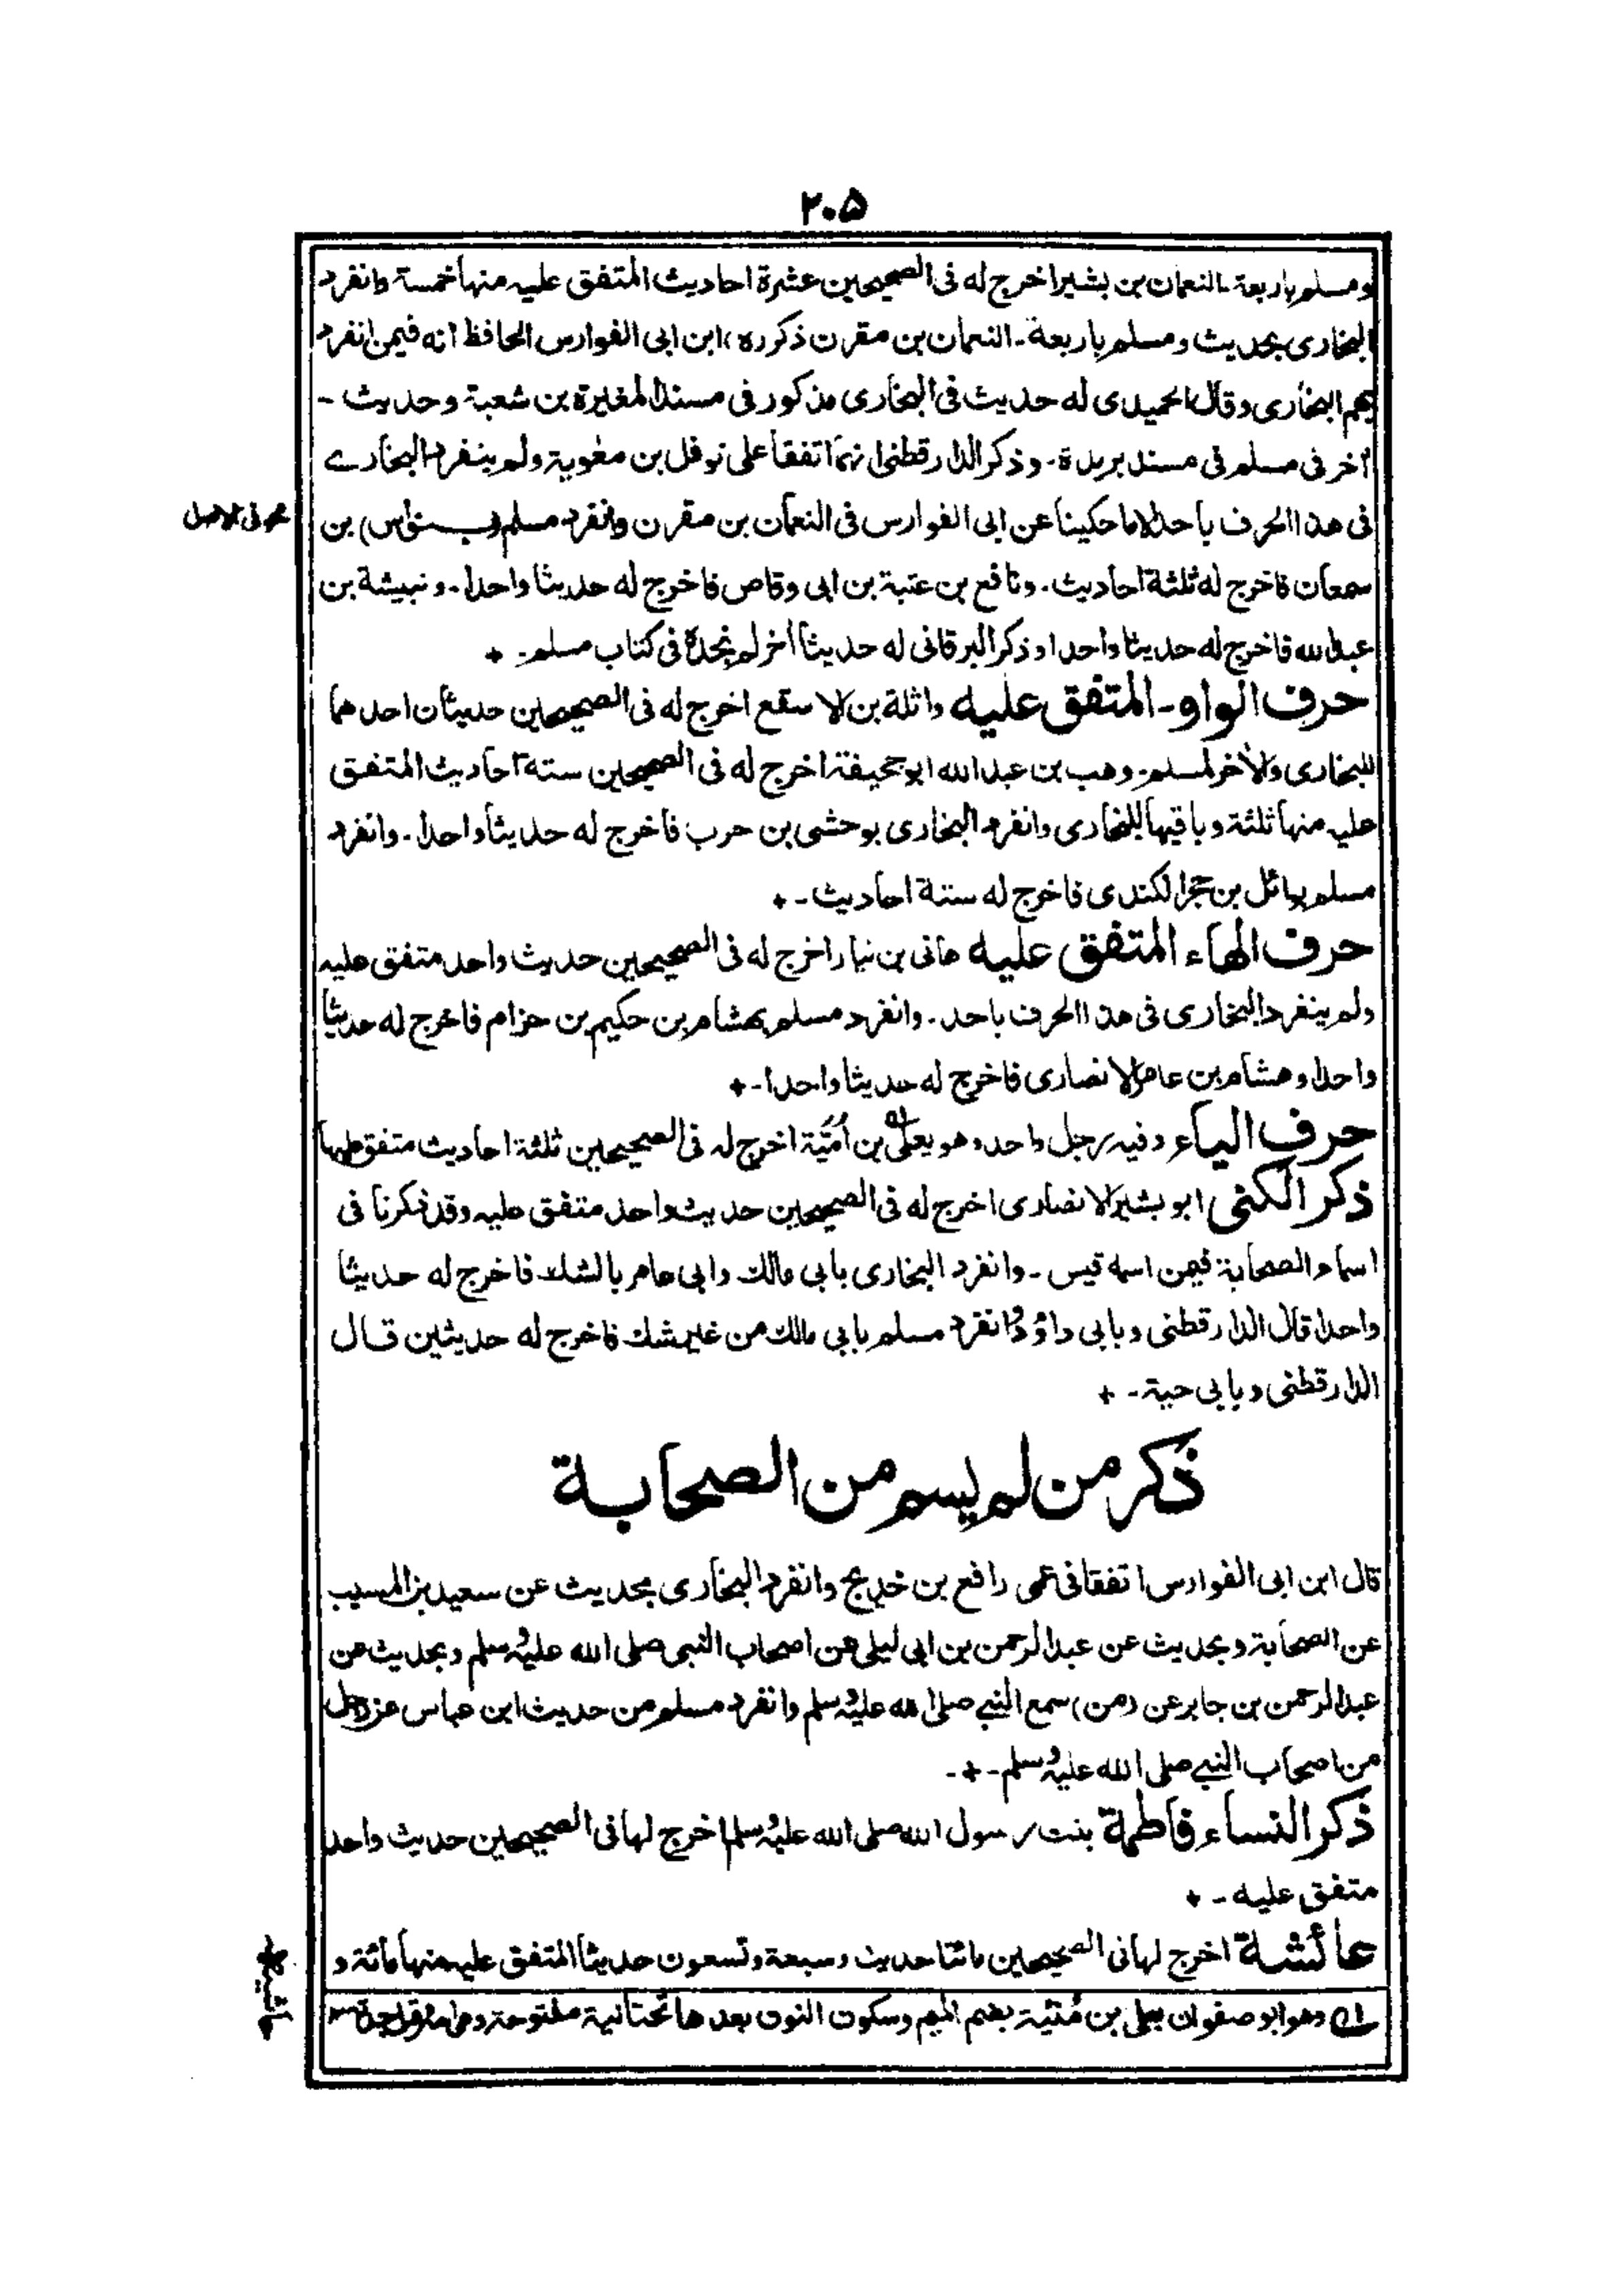 ٢٠٥
ومسلم باربعة ـ النعمان بن بشير اخرج له فى الصحيحين عشرة احاديث المتفق عليه منها خمسة وانفرد
البخارى بحديث ومسلم باربعة ـ النعمان بن مقرن ذكر (ه) ابن ابى الفوارس الحافظ انه فيمن انفرد
بهم البخارى وقال الحميدى له حديث فى البخارى مذكور فى مسند المغيرة بن شعبة وحديث ـ
اخر فى مسلم فى مسند بريدة ـ وذكر الدارقطنى انهما اتفقا على نوفل بن معٰوية ولم ينفرد البخارے
فى هذا الحرف باحد الا ما حكينا عن ابى الفوارس فى النعمان بن مقرن وانفرد مسلم (بـنواس) بن
محو فى الاصل
سمعان فاخرج له ثلثة احاديث ـ ونافع بن عتبة بن ابى وقاص فاخرج له حديثا واحدا ـ ونبيشة بن
عبد الله فاخرج له حديثا واحدا وذكر البرقانى له حديثا اخر لم نجدة فى كتاب مسلم ـ +
حرف الواو ـ المتفق عليه واثلة بن الاسقع اخرج له فى الصحيحين حديثان احدهما
للبخارى والاخر لمسلم ـ وهب بن عبد الله ابو جحيفة اخرج له فى الصحيحين ستة احاديث المتفق
عليه منها ثلثة وباقيها للبخارى وانفرد البخارى بوحشى بن حرب فاخرج له حديثا واحدا ـ وانفرد
مسلم بوائل بن حجر الكندى فاخرج له ستة احاديث ـ +
حرف الهاء المتفق عليه هانى بن نيار اخرج له فى الصحيحين حديث واحد متفق عليه
ولم ينفرد البخارى فى هذا الحرف باحد ـ وانفرد مسلم بهشام بن حكيم بن حزام فاخرج له حديثا
واحدا وهشام بن عامر الانصارى فاخرج له حديثا واحدا ـ +
حرف الياء وفيه رجل واحد وهو يعلى بن اُمَيَّة اخرج له فى الصحيحين ثلثة احاديث متفق عليها
ذكر الكنى ابو بشير الانصارى اخرج له فى الصحيحين حديث واحد متفق عليه وقد ذكرنا فى
اسماء الصحابة فيمن اسمه قيس ـ وانفرد البخارى بابى مالك وابى عامر بالشك فاخرج له حديثا
واحدا قال الدارقطنى وبابى داؤد وانفرد مسلم بابى مالك من غير شك فاخرج له حديثين قال
الدارقطنى وبابى حبة ـ +
ذكر من لم يسم من الصحابة
قال ابن ابى الفوارس اتفقا فى عمى رافع بن خديج وانفرد البخارى بحديث عن سعيد بن المسيب
عن الصحابة وبحديث عن عبد الرحمن بن ابى ليلى عن اصحاب النبى صلى الله عليه وسلم وبحديث عن
عبد الرحمن بن جابر عن (من) سمع النبے صلى الله عليه وسلم وانفرد مسلم من حديث ابن عباس عن رجل
من اصحاب النبے صلى الله عليه وسلم ـ + ـ
ذكر النساء فاطمة بنت رسول الله صلى الله عليه وسلم اخرج لها فى الصحيحين حديث واحد
متفق عليه ـ +
عائشة اخرج لها فى الصحيحين مائتا حديث وسبعة وتسعون حديثا المتفق عليه منها مائة و
(١) وهو ابو صفوان يعلى بن مُنْيَة بضم الميم وسكون النون بعدها تحتانية مفتوحة وهى امه